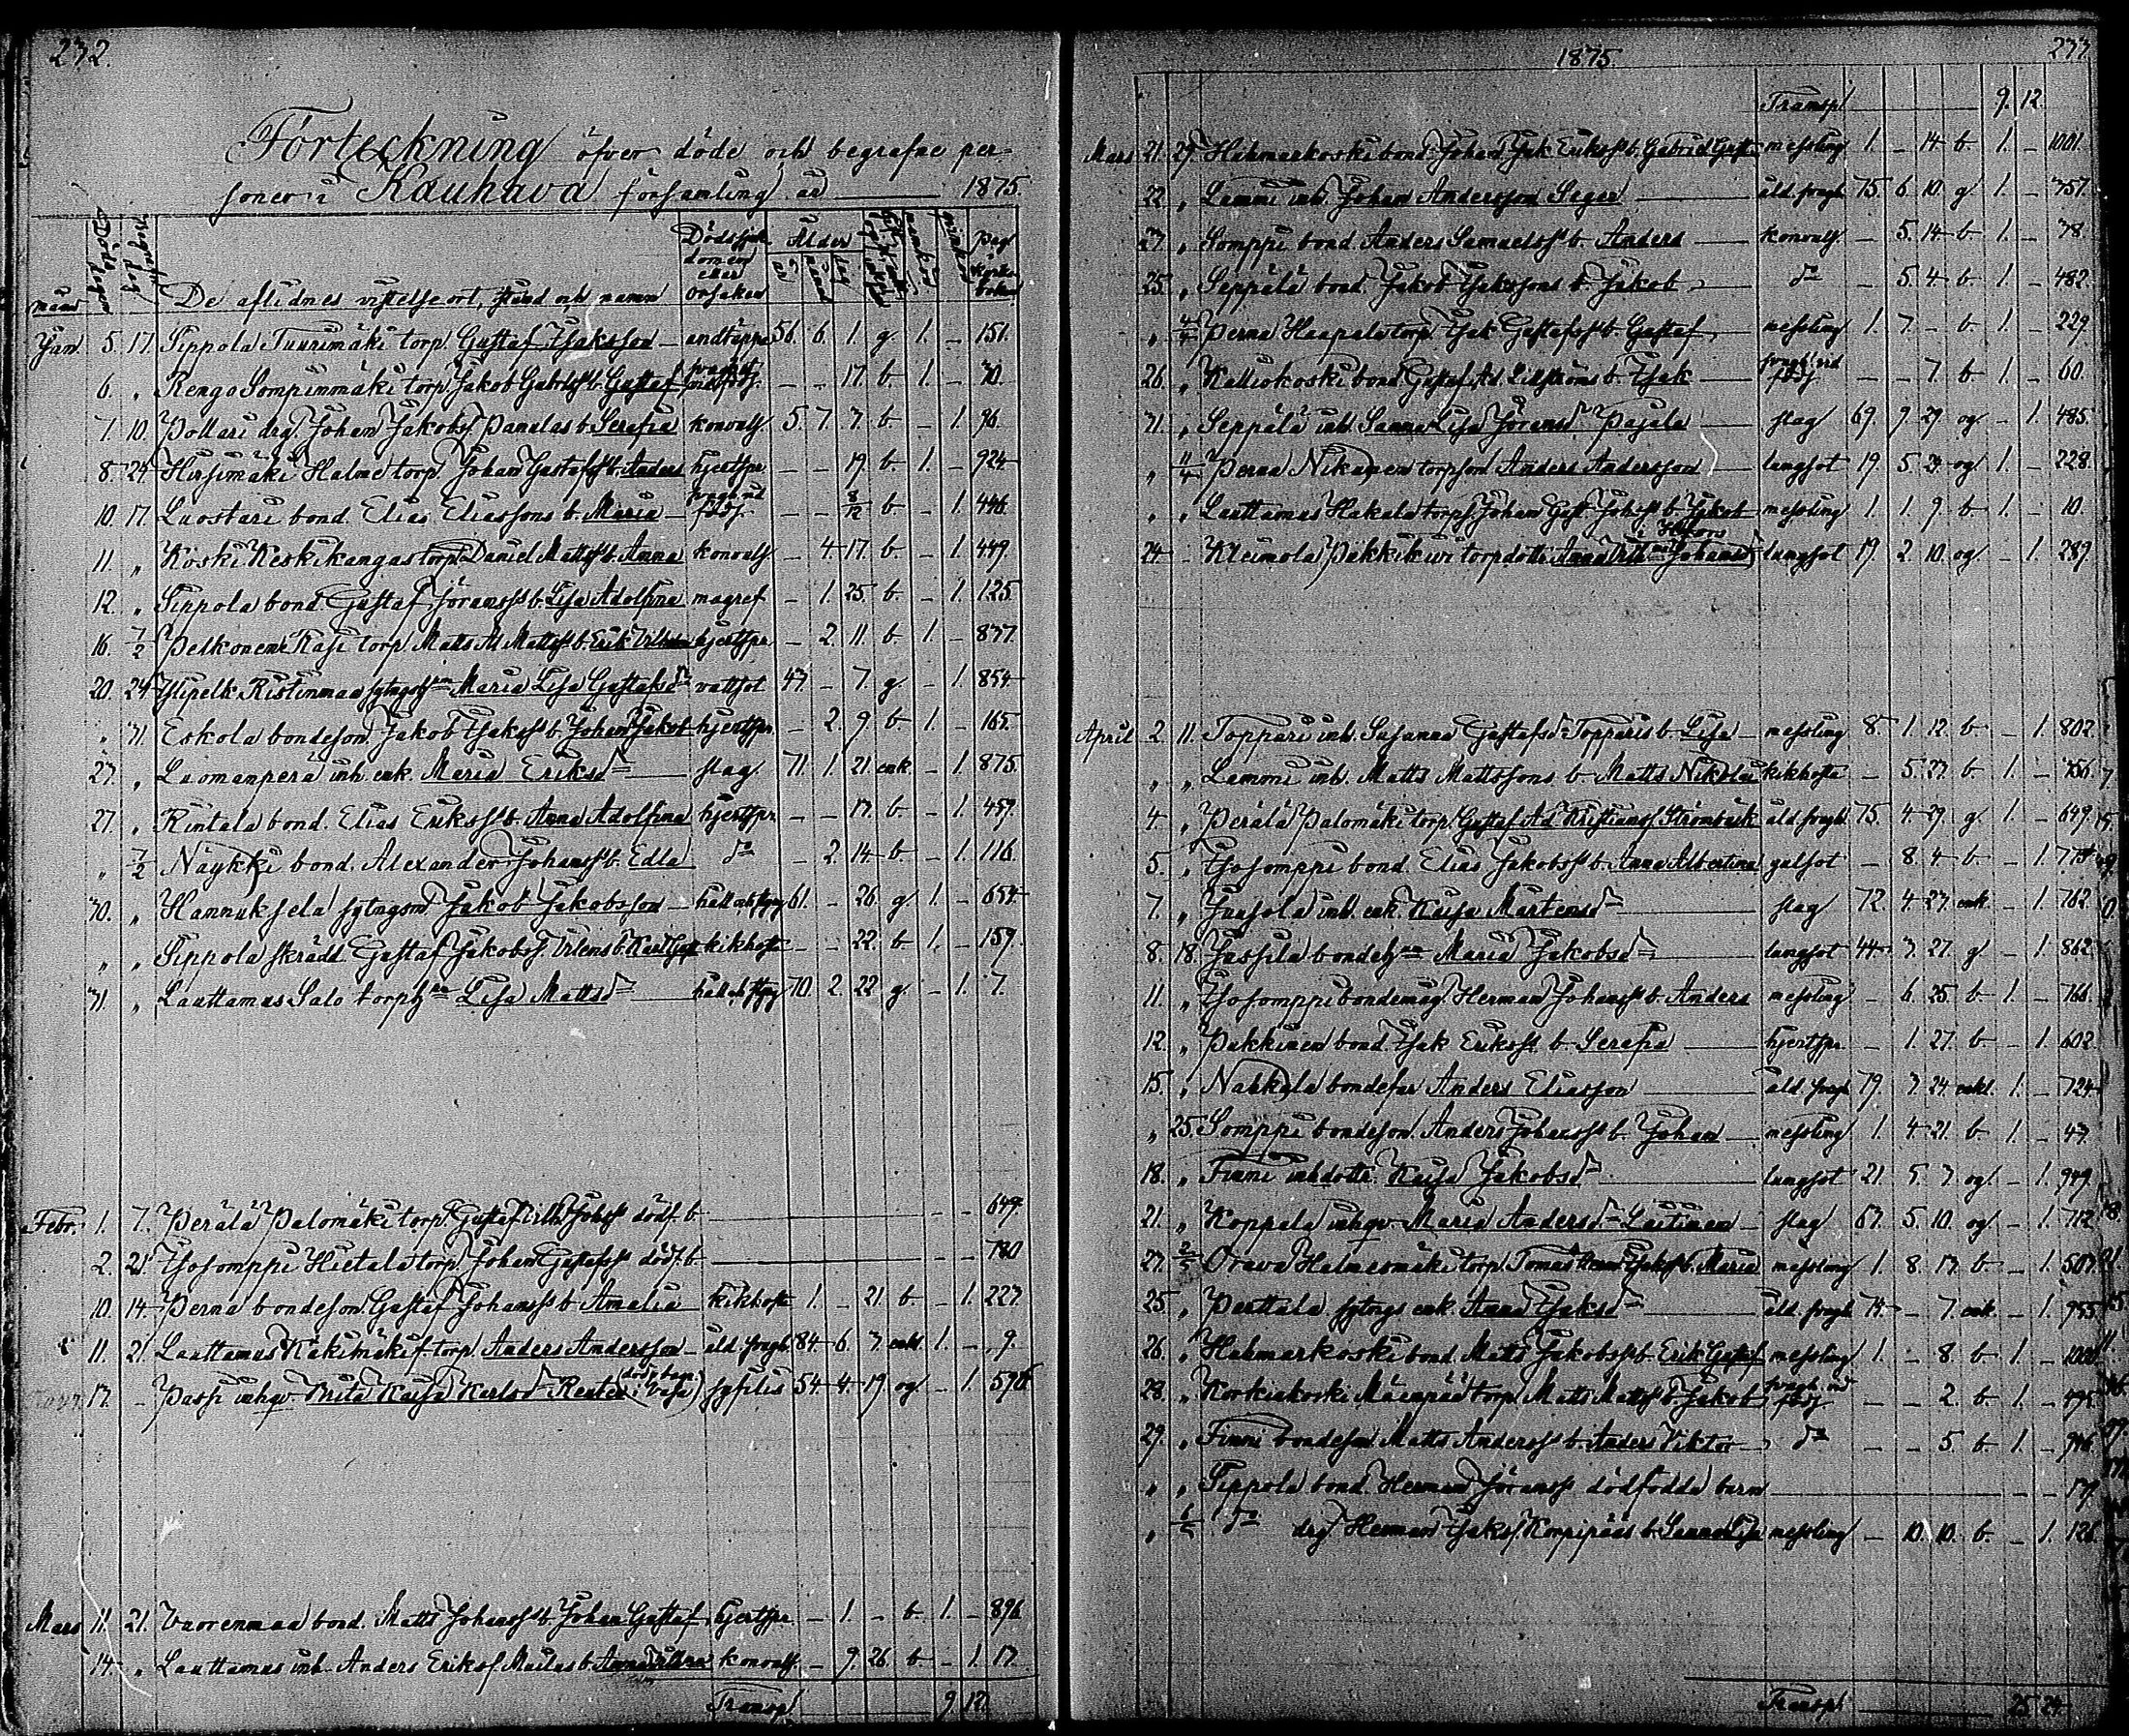 232.
Förteckning öfver döde och begrafne per-
soner i Kauhava församling år 1875
månd Döds dagen Begrafn. dag De aflidnes vistelseort, stånd och namn Dödssjukdomen eller orsaken Ålder år månad dag mankön qvinkön Pag. i kyrkoboken
Jan. 5. 17. Tippola Tuurimäki torp. Gustaf Isaksson andtäppa 56. 6. 1. g. 1. – 151.
6. „ Rengo Sompinmäki torp. Jakob Gabrlss b. Gustaf – – 17. b. 1. – 70.
7. 10. Pollari drg. Johan Jakobs. Panulas b. Serafia konvuls 5. 7. 7. b – 1. 96.
8. 24. Hirsimäki Halme torp. Johan Gustafss b. Anders hjertspr. – – 19. b. 1. – 924.
10. 17. Luostari bond. Elias Eliassons b. Maria svagh. vid föds. – – 8/12 b – 1. 446.
11. „ Koski Keskikangas torp. Daniel Mattss b. Anna konvuls – 4. 17. b. – 1. 449.
12. „ Tippola bond. Gustaf Jöranss b. Lisa Adolfina magref – 1. 25. b. – 1. 125.
16. 7/2 Pelkonen Kasi torp. Matts M Mattss b. Erik Vilhelm hjertspr. – 2. 11. b. 1. – 837.
20. 24. Ylipelk. Ristinmaa Maria Lisa Gustafsdr vattsot 47. – 7. g. – 1. 854.
„ 31. Eskola bondeson Jakob Isakss b. Johan Jakob hjertspr. – 2. 9. b. 1. – 165.
23. „ Luomanperä inh. enk. Maria Eriksdr slag. 71. 1. 21. enk. – 1. 875.
27. „ Rintala bond. Elias Erikss b. Anna Adolfina hjertspr. – – 17. b. – 1. 457.
„ 7/2 Näykki bond. Alexander Johanss b. Edla do – 2. 14. b. – 1. 116.
30. „ Hannuksela sytngsm. Jakob Jakobsson 61. – 26. g. 1. – 654.
„ „ Tippola skrädd. Gustaf Jakobss. kikhosta – – 22. b. 1. – 159.
31. „ Lauttamus Salo torp. Lisa Mattsdr 70. 2. 22. g. – 1. 7.
Febr. 1. 7. Perälä Palomäki torp. Gustaf Vilh. Johss dödf. b. – – 649.
2. 21. Isosomppi Hietala torp. Johan Gustafss dödf. b. – – 780
10. 14. Perna bondeson Gustaf Johanss b. Amalia kikhosta 1. – 21. b. – 1. 227.
11. 21. Lauttamus Käkimäki f. torp. Anders Andersson åld. svagh. 84. 6. 3. enkl. 1. – 9.
17. – Passi inhqv. Brita Kaisa Karlsdr syfilis 54. 4. 19. og. – 1. 576.
Mars 11. 21. Vuorenmaa bond. Matts Johanss b. Johan Gustaf hjertspr. – 1. – b. 1. – 896.
14. „ Lauttamus inh. Anders Eriks. Mailas b. konvuls. – 9. 26. b. – 1. 17.
Transp. 9. 12.
1875. 233
Transp. 9. 12.
Mars 21. 29. Hahmarkoski bond. Johan Isak Erikss b. Gabriel Gustaf messling 1. – 14. b 1. – 1001.
22. „ Lammi inh. Johan Andersson Seger åld. svagh. 75. 6. 10. g. 1. – 757.
23. „ Somppi bond. Anders Samuelss b. Anders konvuls. – 5. 14. b. 1. – 78.
25. „ Seppälä bond. Jakob Isakssons b. Jakob do – 5. 4. b. 1. – 482.
„ 4/4 Perna Haapala torp. Isak Gustafss b. Gustaf messling 1. 7. – b. 1. – 229.
26. „ Kalliokoski bond. Gustaf Ad. Lillströms b. Isak svagh. vid föds – – 7. b. 1. – 60.
31. „ Seppälä inh. Sanna Lisa Jöransdr Pajala slag 69. 9. 29. og. – 1. 485.
„ 11/4 Perna Nikunen torpson Anders Andersson lungsot 19. 5. 23. og. 1. – 228.
„ „ Lauttamus Hakala torp. Johan Gust. Johss b. Jakob messling 1. 1. 9. b. 1. – 10.
24. – Kleimola torpdottr. i Hfors lungsot 19. 2. 10. og. – 1. 289.
April 2. 11. Toppari inh. Susanna Gustafsdr Topparis b. Lisa messling 8. 1. 12. b. – 1. 802.
„ „ Lammi inh. Matts Mattssons b. Matts Nikolai kikhosta – 5. 23. b. 1. – 756.
4. „ Perälä Palomäki torp. Gustaf Ad. Kristianss. Strömbäck åld. svagh. 75. 4. 29. g. 1. – 649.
5. „ Isosomppi bond. Elias Jakobss b. Anna Albertina gulsot – 8. 4. b – 1.
7. „ Jussola inh. enk. Kaisa Mårtensdr slag 72. 4. 27. enk. – 1. 762.
8. 18. Jussila Maria Jakobsdr lungsot 44. 3. 27. g. – 1. 862.
11. „ Isosomppi bondemåg. Herman Johanss b. Anders messling – 6. 25. b. 1. – 766.
12. „ Pukkinen bond. Isak Erikss b. Serafia hjertspr. – 1. 27. b – 1. 602.
15. „ Anders Eliasson åld. svagh. 79. 3. 24. enkl. 1. – 724.
„ 25. Somppi bondeson Anders Johanss b. Johan messling 1. 4. 21. b. 1. – 47.
18. „ Finni inhdottr. Kaisa Jakobsdr lungsot 21. 5. 3. og. – 1. 949.
21. „ Koppela inhqv. Maria Andersdr Laitinen slag 67. 5. 10. og. – 1. 712.
23. 2/5 Orava Halmesmäki torp. Tomas Isakss b. Maria messling 1. 8. 17. b – 1. 507.
25. „ Perttula sytngs enk. Anna Isaksdr åld. svagh. 74. – 7. enk. – 1. 955.
26. „ Hahmarkoski bond. Matts Jakobss b. Erik Gustaf messling 1. – 8. b 1. – 1000.
28. „ Korkiakoski Mäenpää torp. Matts Mattss b. Jakob svagh. vid föds. – – 2. b. 1. – 492.
29. „ Finni bondeson Matts Anderss b. Anders Viktor do – – 5. b. 1. – 946.
„ „ Tippola bond. Herman Jöranss dödfödda barn – –
„ 6/5 do drg. Herman Isaks. Korpipääs b. Sanna Lisa messling – 10. 10. b. – 1. 126.
Transp. 25. 24.